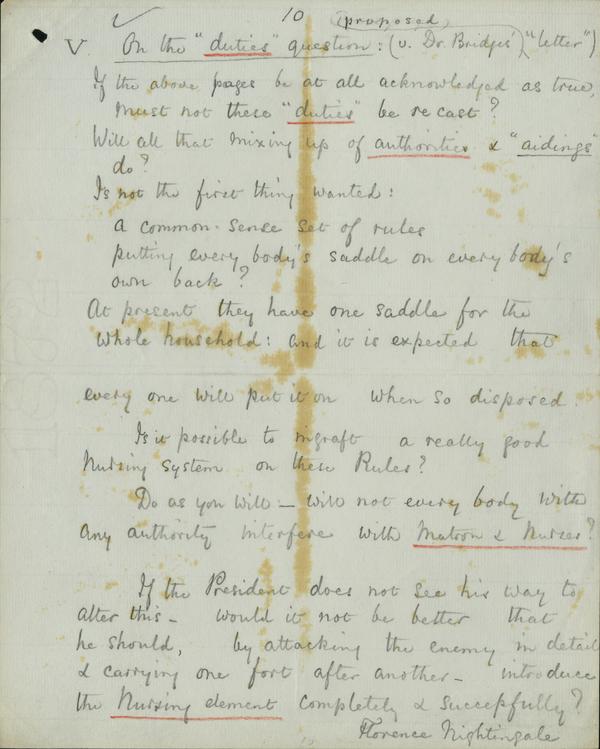 10
(proposed)
V. On the "duties" question: (v. Dr. Bridges' "letter")
If the above pages be at all acknowledged as true,
must not these "duties" be re cast?
Will all that mixing up of authorities & "aidings"
do?
Is not the first thing wanted:
a common-sense set of rules
putting every body's saddle on every body's
own back?
At present they have one saddle for the
whole household: and it is expected that
every one will put it on when so disposed.
Is it possible to ingraft a really good
Nursing System on these Rules?
Do as you will – will not every body with
any authority interfere with Matron & Nurses?
If the President does not see his way to
alter this – would it not be better that
he should, by attacking the enemy in detail
& carrying one fort after another – introduce
the Nursing element completely & successfully?
Florence Nightingale